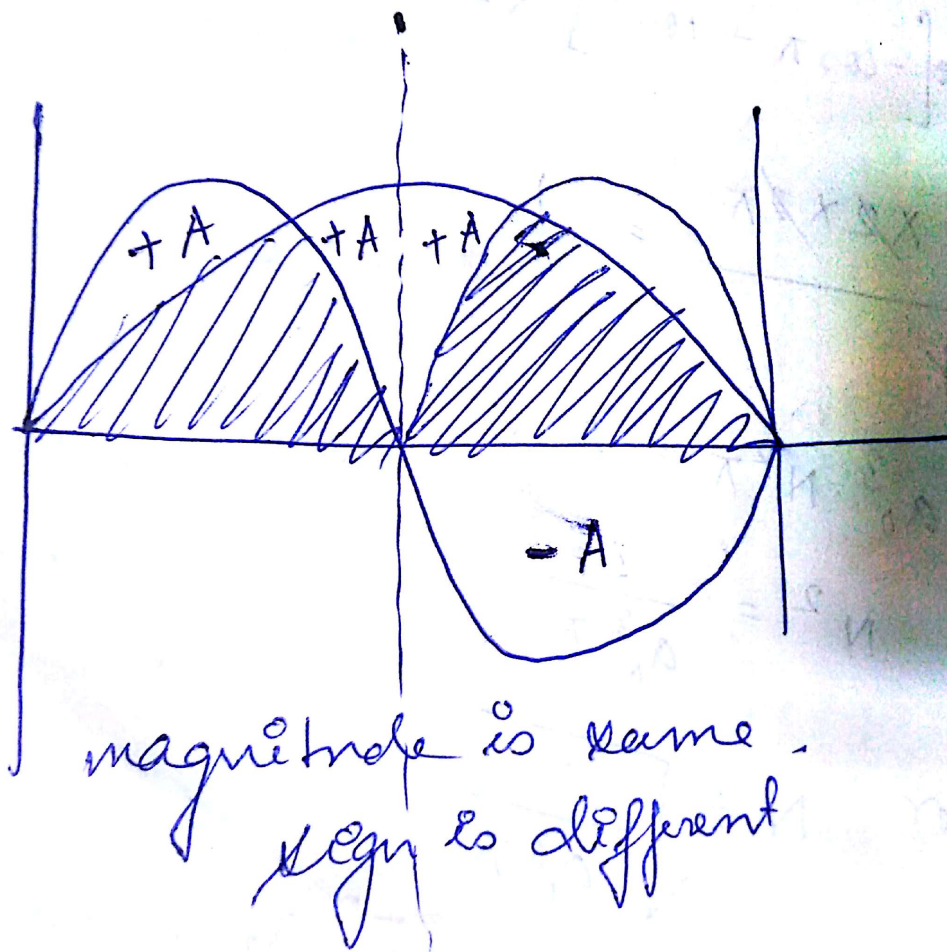 + A + A + A
- A
magnitude is same.
sign is different